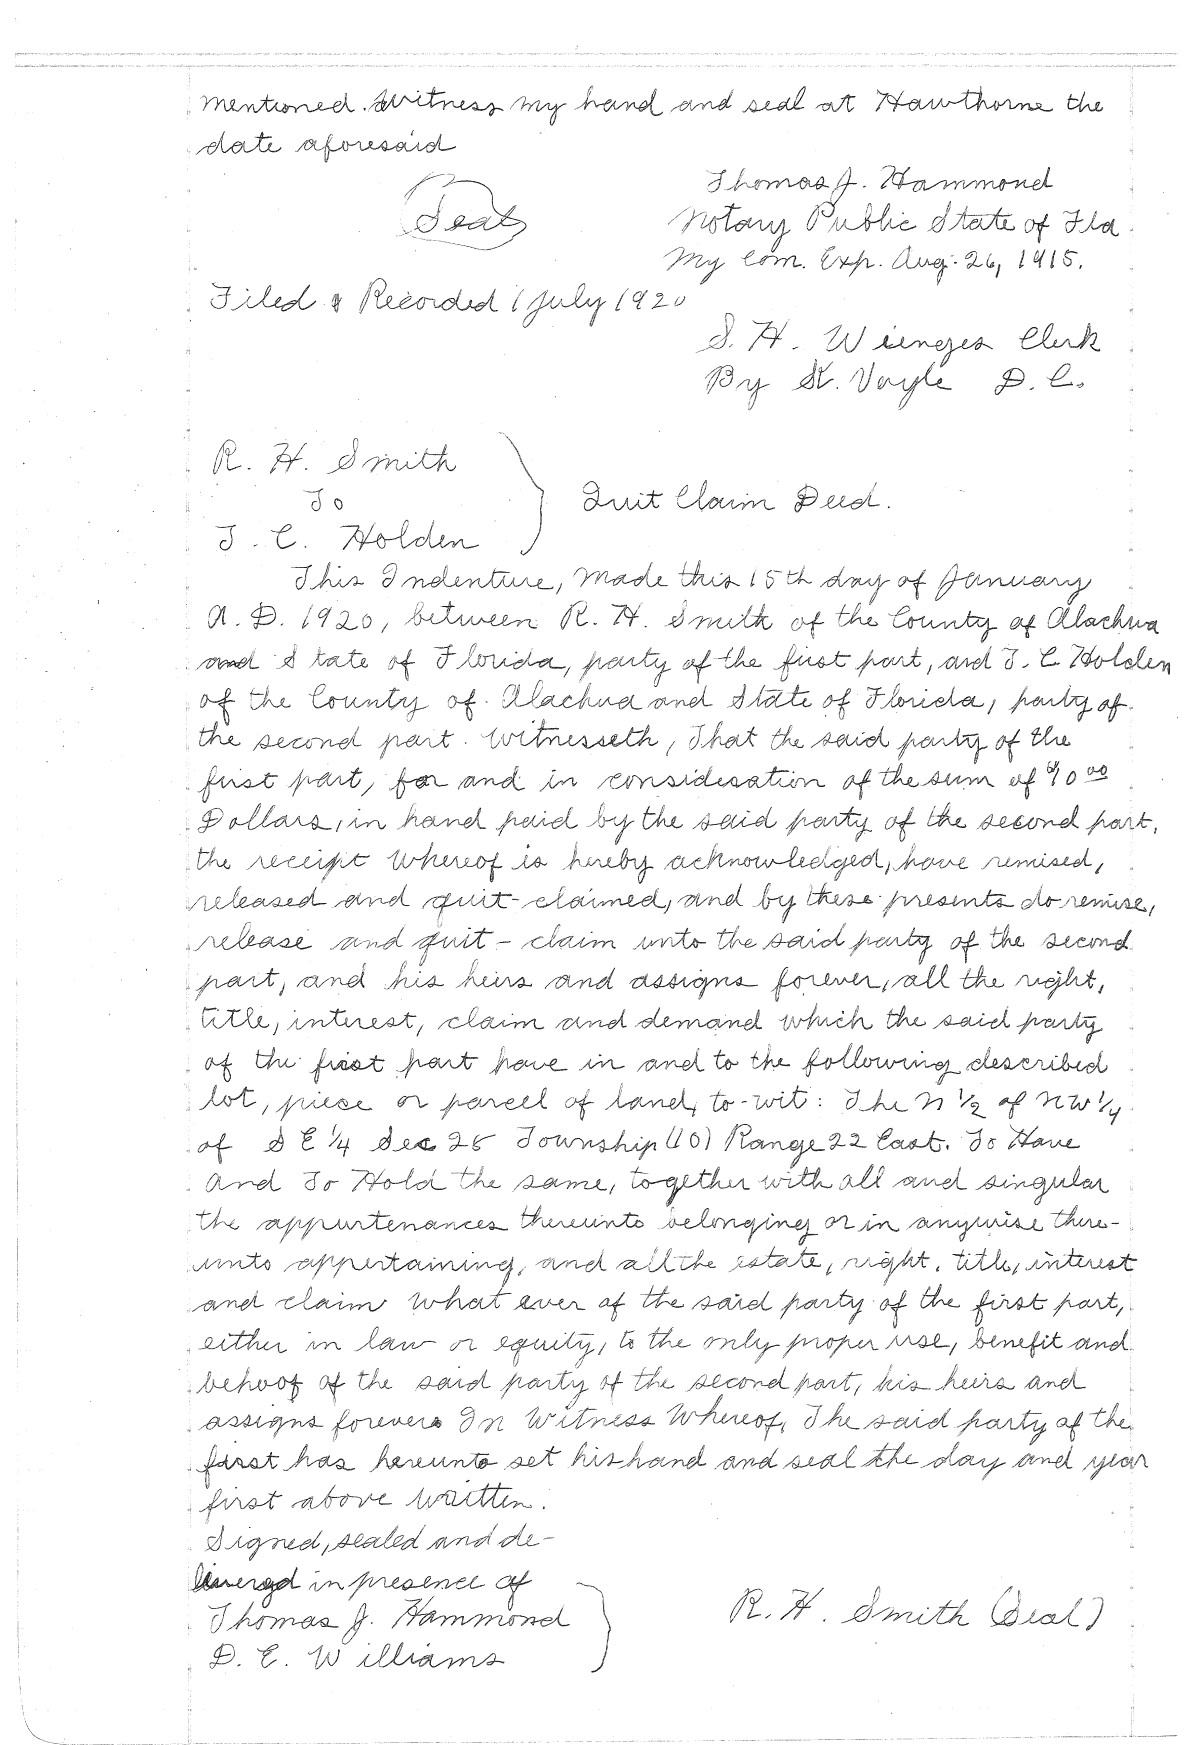 mentioned. Witness my hand and seal at Hawthorne the
date aforesaid
Thomas J. Hammond
Seal
Notary Public State of Fla.
My Com. Exp. Aug. 26, 1915.
Filed & Recorded 1 July 1920
S. H. Wienges Clerk
By St. Vayle D. C.
R. H. Smith
To
Quit Claim Deed.
T. C. Holden
This Indenture, Made this 15th day of January
A. D. 1920, between R. H. Smith of the County of Alachua
and State of Florida, party of the first part, and T. C. Holden
of the County of Alachua and State of Florida, party of
the second part. Witnesseth, That the said party of the
first part, for and in consideration of the sum of $10 00
Dollars, in hand paid by the said party of the second part,
the receipt whereof is hereby acknowledged, have remised,
released and quit-claimed, and by these presents do remise,
release and quit-claim unto the said party of the second
part, and his heirs and assigns forever, all the right,
title, interest, claim and demand which the said party
of the first part have in and to the following described
lot, piece or parcel of land, to-wit: The N 1/2 of NW 1/4
of SE 1/4 Sec 25 Township (10) Range 22 East. To Have
And To Hold the same, together with all and singular
the appurtenances thereunto belonging or in anywise there-
unto appertaining, and all the estate, right, title, interest
and claim what ever of the said party of the first part,
either in law or equity, to the only proper use, benefit and
behoof of the said party of the second part, his heirs and
assigns forever. In Witness Whereof, The said party of the
first has hereunto set his hand and seal the day and year
first above written.
Signed, sealed and de-
livered in presence of
Thomas J. Hammond
R. H. Smith (Seal)
D. E. Williams